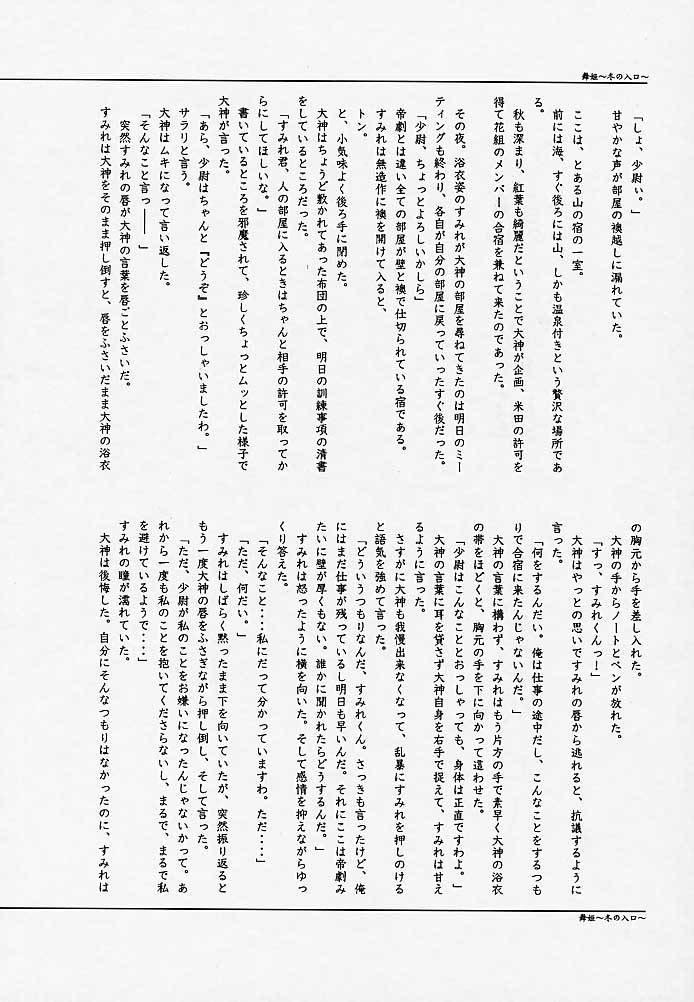 舞姫～冬の入口～
「しょ、少尉ぃ。」
甘やかな声が部屋の襖越しに漏れていた。
ここは、とある山の宿の一室。
前には海、すぐ後ろには山、しかも温泉付きという贅沢な場所であ
る。
秋も深まり、紅葉も綺麗だということで大神が企画、米田の許可を
得て花組のメンバーの合宿を兼ねて来たのであった。
その夜。浴衣姿のすみれが大神の部屋を尋ねてきたのは明日のミー
ティングも終わり、各自が自分の部屋に戻っていったすぐ後だった。
「少尉、ちょっとよろしいかしら」
帝劇とは違い全ての部屋が壁と襖で仕切られている宿である。
すみれは無造作に襖を開けて入ると、
トン。
と、小気味よく後ろ手に閉めた。
大神はちょうど敷かれてあった布団の上で、明日の訓練事項の清書
をしているところだった。
「すみれ君、人の部屋に入るときはちゃんと相手の許可を取ってか
らにしてほしいな。」
書いているところを邪魔されて、珍しくちょっとムッとした様子で
大神が言った。
「あら、少尉はちゃんと『どうぞ』とおっしゃいましたわ。」
サラリと言う。
大神はムキになって言い返した。
「そんなこと言っ――　」
突然すみれの唇が大神の言葉を唇ごとふさいだ。
すみれは大神をそのまま押し倒すと、唇をふさいだまま大神の浴衣
の胸元から手を差し入れた。
大神の手からノートとペンが放れた。
「すっ、すみれくんっ！」
大神はやっとの思いですみれの唇から逃れると、抗議するように
言った。
「何をするんだい。俺は仕事の途中だし、こんなことをするつも
りで合宿に来たんじゃないんだ。」
大神の言葉に構わず、すみれはもう片方の手で素早く大神の浴衣
の帯をほどくと、胸元の手を下に向かって這わせた。
「少尉はこんなこととおっしゃっても、身体は正直ですわよ。」
大神の言葉に耳を貸さず大神自身を右手で捉えて、すみれは甘え
るように言った。
さすがに大神も我慢出来なくなって、乱暴にすみれを押しのける
と語気を強めて言った。
「どういうつもりなんだ、すみれくん。さっきも言ったけど、俺
にはまだ仕事が残っているし明日も早いんだ。それにここは帝劇み
たいに壁が厚くもない。誰かに聞かれたらどうするんだ。」
すみれは怒ったように横を向いた。そして感情を抑えながらゆっ
くり答えた。
「そんなこと・・・・私にだって分かっていますわ。ただ・・・・」
「ただ、何だい。」
すみれはしばらく黙ったまま下を向いていたが、突然振り返ると
もう一度大神の唇をふさぎながら押し倒し、そして言った。
「ただ、少尉が私のことをお嫌いになったんじゃないかって。あ
れから一度も私のことを抱いてくださらないし、まるで、まるで私
を避けているようで・・・」
すみれの瞳が濡れていた。
大神は後悔した。自分にそんなつもりはなかったのに、すみれは
舞姫～冬の入口～